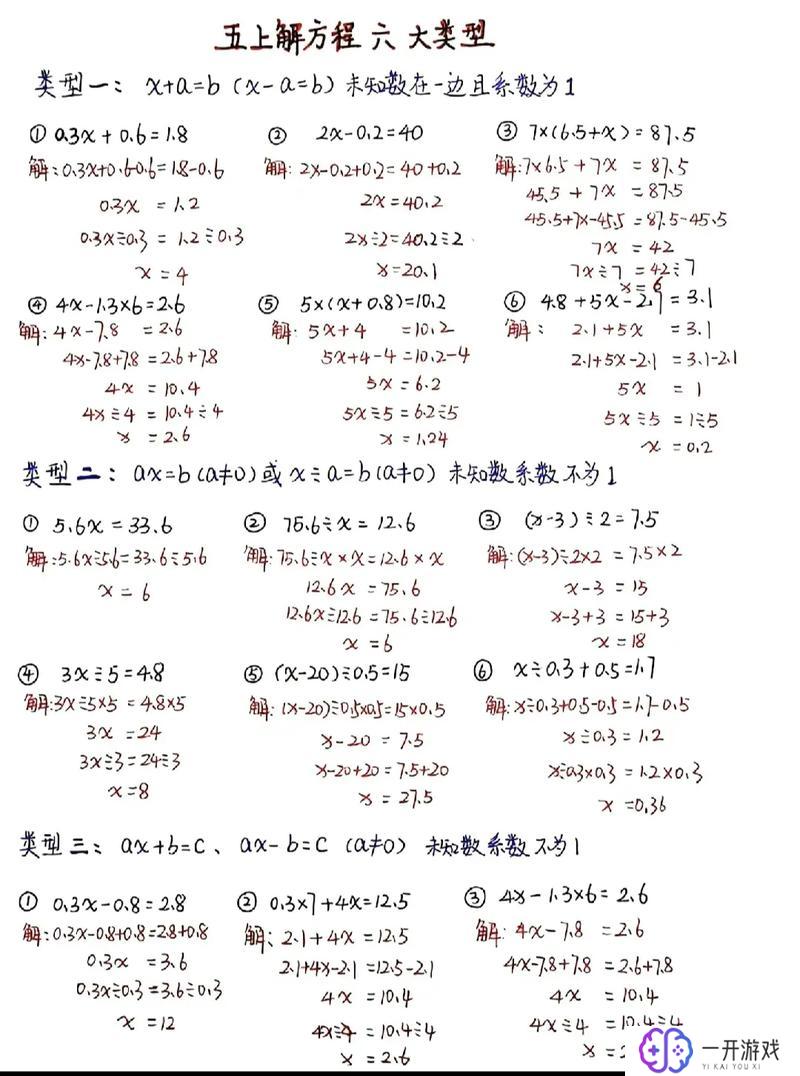 五上解方程 六大类型
类型一： x+a=b（x-a=b）未知数在一边且系数为1
① 0.3x+0.6=1.8
解：0.3x+0.6-0.6=1.8-0.6
0.3x =1.2
0.3x÷0.3 =1.2÷0.3
x=4
② 2x-0.2=40
解：2x-0.2+0.2=40+0.2
2x=40.2
2x÷2=40.2÷2
x=20.1
③ 7×(6.5+x)=87.5
解：7×6.5+7x =87.5
45.5+7x =87.5
45.5+7x-45.5 =87.5-45.5
7x =42
7x÷7 =42÷7
x=6
④ 4x-1.3×6=2.6
解：4x-7.8 =2.6
4x-7.8+7.8 =2.6+7.8
4x =10.4
4x÷4 =10.4÷4
x =2.6
⑤ 5×(x+0.8)=10.2
解：5x+4 =10.2
5x+4-4=10.2-4
5x=6.2
5x÷5=6.2÷5
x=1.24
⑥ 4.8+5x-2.7=3.1
解： 2.1+5x =3.1
2.1+5x-2.1 =3.1-2.1
5x =1
5x÷5 =1÷5
x =0.2
类型二： ax=b(a≠0)或x÷a=b(a≠0) 未知数系数不为1
① 5.6x=33.6
解：5.6x÷5.6=33.6÷5.6
x=6
② 75.6÷x=12.6
解：75.6÷x×x=12.6×x
12.6x =75.6
12.6x÷12.6 =75.6÷12.6
x=6
③ (x-3)÷2=7.5
解：(x-3)÷2×2 =7.5×2
x-3 =15
x-3+3 =15+3
x=18
④ 3x÷5=4.8
解：3x÷5×5 =4.8×5
3x =24
3x÷3=24÷3
x=8
⑤ (x-20)÷0.5=15
解：(x-20)÷0.5×0.5=15×0.5
x-20 =7.5
x-20+20=7.5+20
x=27.5
⑥ x÷0.3+0.5=1.7
解：x÷0.3+0.5-0.5=1.7-0.5
x÷0.3=1.2
x÷0.3×0.3 =1.2×0.3
x =0.36
类型三： ax+b=c、ax-b=c（a≠0） 未知数系数不为1
① 0.3x-0.8=2.8
解：0.3x-0.8+0.8=2.8+0.8
0.3x =3.6
0.3x÷0.3=3.6÷0.3
x=12
② 0.3×7+4x=12.5
解：2.1+4x=12.5
2.1+4x-2.1=12.5-2.1
4x=10.4
4x÷4=10.4÷4
x=2.6
③ 4x-1.3×6=2.6
解：4x-7.8 =2.6
4x-7.8+7.8 =2.6+7.8
4x =10.4
4x÷4 =10.4÷4
x=2
一开游戏
YI KAI YOU XI